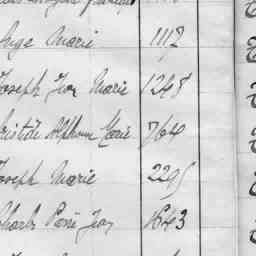 Ange Marie 1112
Joseph Jean Marie 1248
Aristide Alphonse Marie 764
Joseph Marie 2295
Charles René Jean 1643